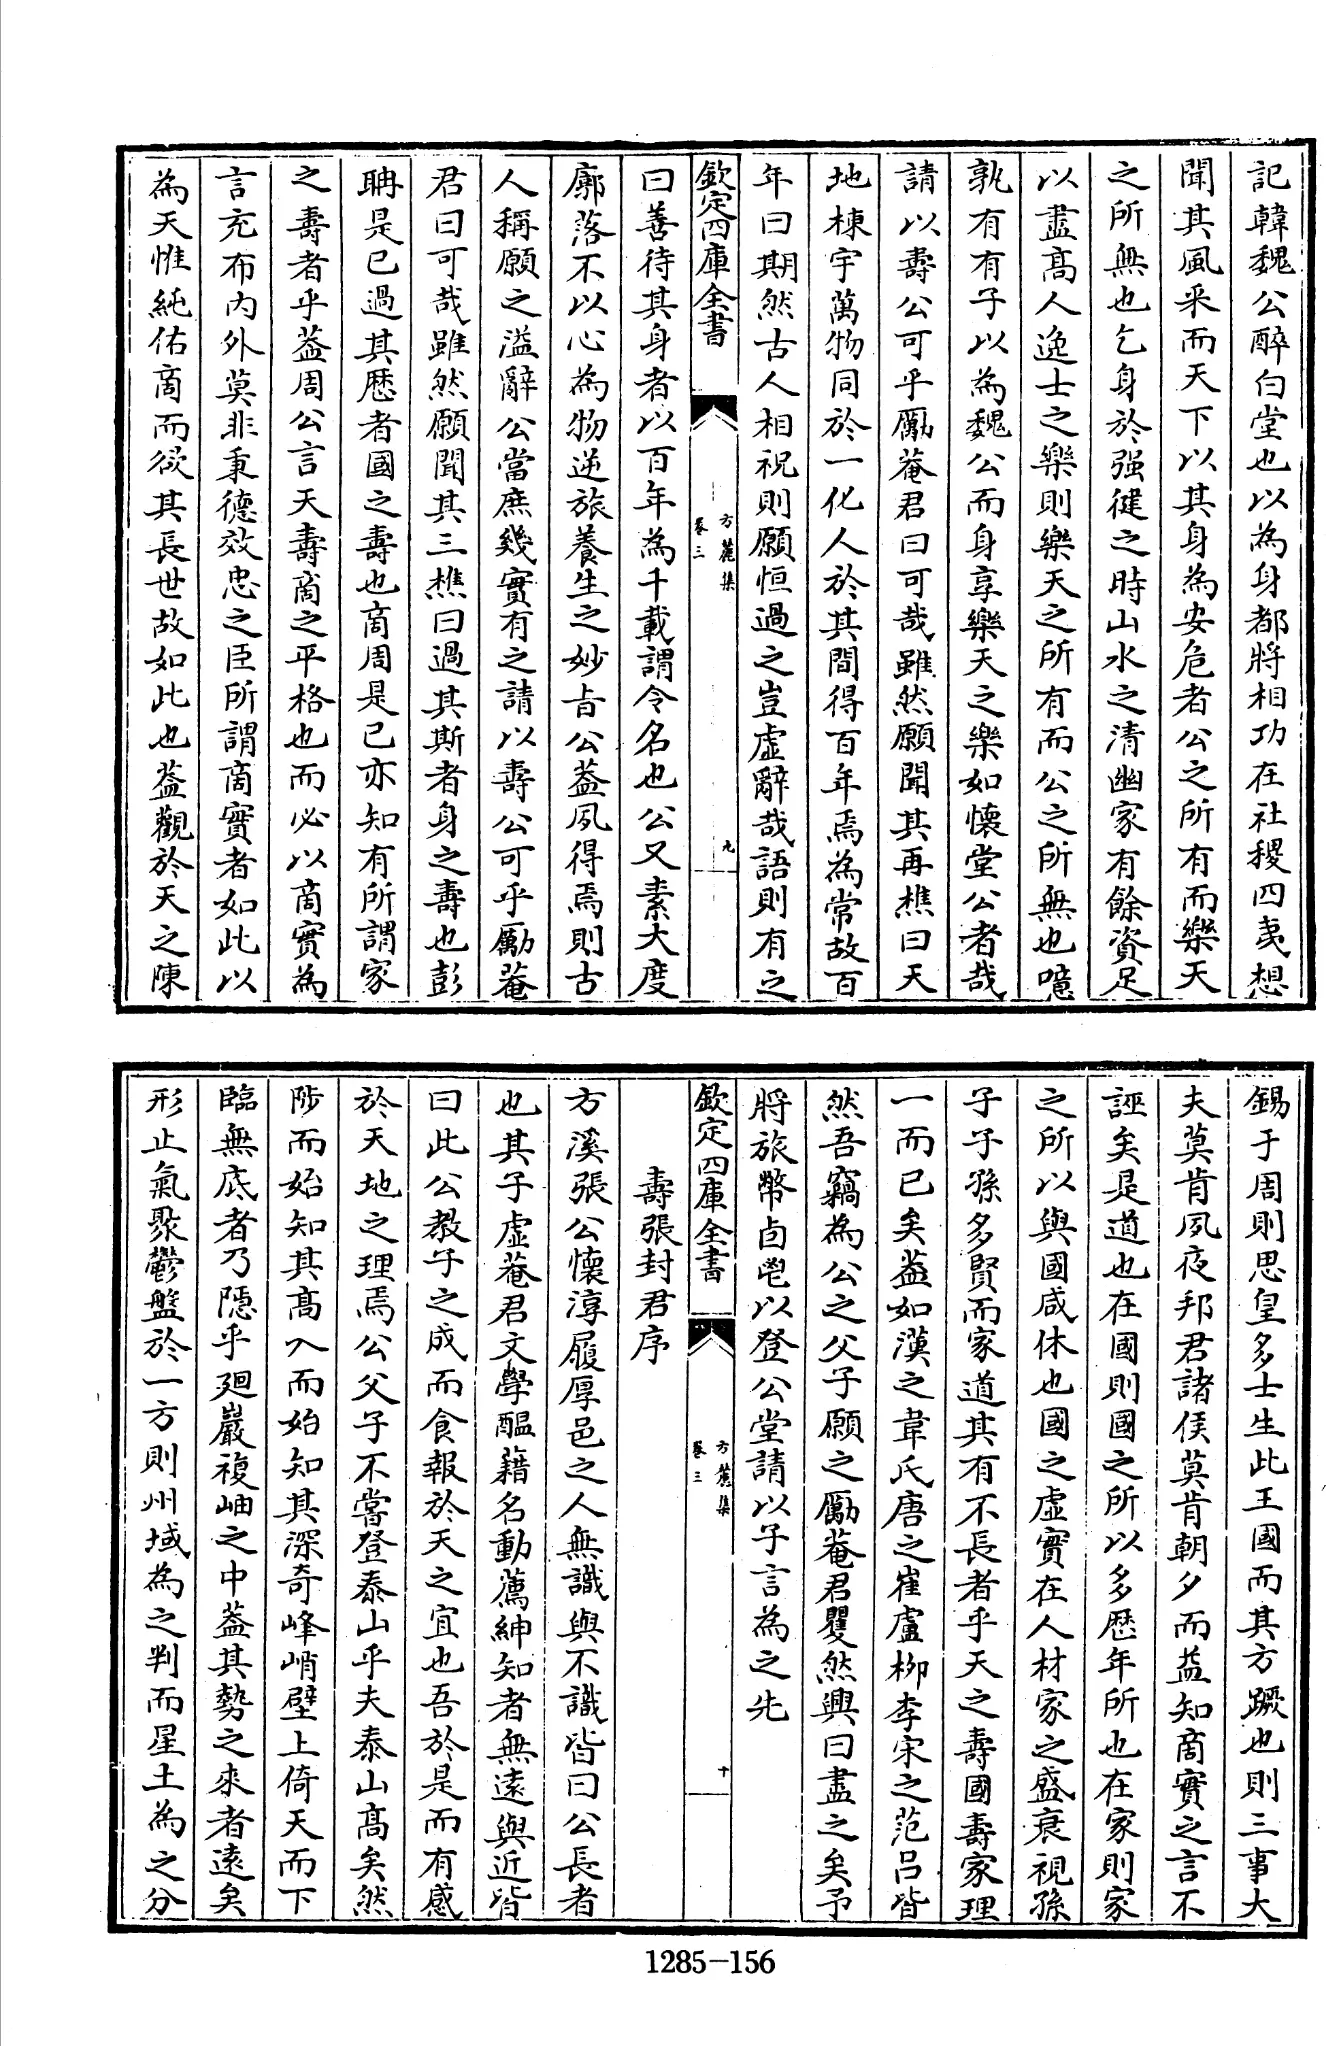 記韓魏公醉白堂也以為身都將相功在社稷四夷想
聞其風采而天下以其身為安危者公之所有而樂天
之所無也乞身於强健之時山水之清幽家有餘資足
以盡髙人逸士之樂則樂天之所有而公之所無也噫
孰有有子以為魏公而身享樂天之樂如懐堂公者哉
請以壽公可乎勵菴君曰可哉雖然願聞其再樵曰天
地棟宇萬物同於一化人於其間得百年焉為常故百
年曰期然古人相祝則願恒過之豈虛辭哉語則有之
欽定四庫全書
方麓集
卷三
九
曰善待其身者以百年為千載謂令名也公又素大度
廓落不以心為物逆旅養生之妙㫖公葢夙得焉則古
人稱願之溢辭公當庶幾實有之請以壽公可乎勵菴
君曰可哉雖然願聞其三樵曰過其斯者身之壽也彭
聃是已過其歴者國之壽也商周是已亦知有所謂家
之壽者乎葢周公言天壽商之平格也而必以商實為
言充布内外莫非秉德效忠之臣所謂商實者如此以
為天惟純佑商而欲其長世故如此也葢觀於天之陳
錫于周則思皇多士生此王國而其方蹶也則三事大
夫莫肯夙夜邦君諸侯莫肯朝夕而益知商實之言不
誣矣是道也在國則國之所以多歴年所也在家則家
之所以與國咸休也國之虛實在人材家之盛衰視孫
子子孫多賢而家道其有不長者乎天之壽國壽家理
一而已矣葢如漢之韋氏唐之崔盧栁李宋之范吕皆
然吾竊為公之父子願之勵菴君矍然興曰盡之矣予
將旅幣卣鬯以登公堂請以子言為之先
欽定四庫全書
方麓集
卷三
十
壽張封君序
方溪張公懐淳履厚邑之人無識與不識皆曰公長者
也其子虛菴君文學醖藉名動薦紳知者無遠與近皆
曰此公教子之成而食報於天之宜也吾於是而有感
於天地之理焉公父子不嘗登泰山乎夫泰山髙矣然
陟而始知其髙入而始知其深奇峰峭壁上倚天而下
臨無底者乃隱乎廻巖複岫之中葢其勢之來者遠矣
形止氣聚鬱盤於一方則州域為之判而星土為之分
1285-156